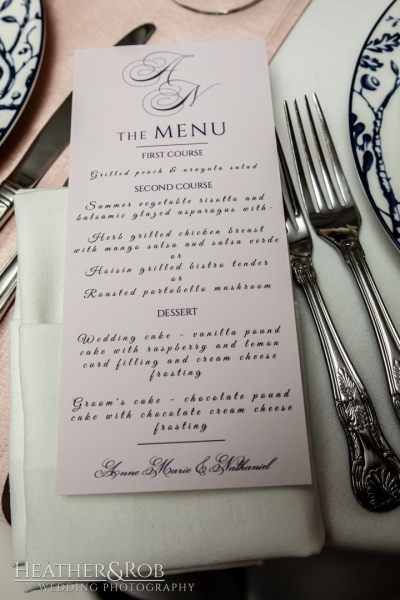 A
N
THE MENU
FIRST COURSE
Grilled peach & arugula salad
SECOND COURSE
Summer vegetable risotto and
balsamic glazed asparagus with-
Herb grilled chicken breast
with mango salsa and salsa verde
or
Hoisin grilled bistro tender
or
Roasted portobello mushroom
DESSERT
Wedding cake - vanilla pound
cake with raspberry and lemon
curd filling and cream cheese
frosting
Groom's cake - chocolate pound
cake with chocolate cream cheese
frosting
Anne Marie & Nathaniel
HEATHER&ROB
WEDDING PHOTOGRAPHY